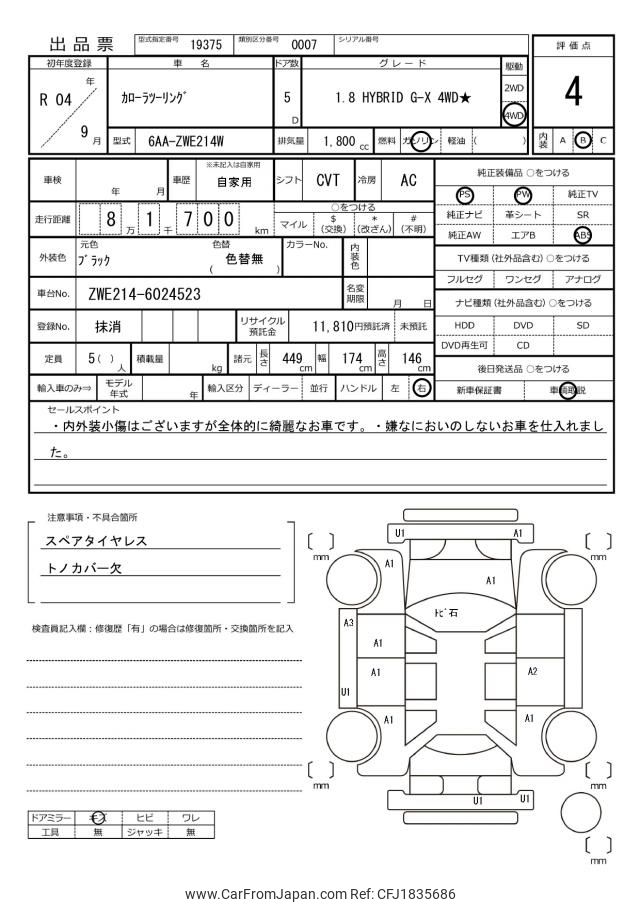 出品票
型式指定番号 19375 類別区分番号 0007 シリアル番号
初年度登録 車名 ドア数 グレード 駆動 評価点
R 04 年 9 月 カローラツーリング 5 D 1.8 HYBRID G-X 4WD★ 2WD 4WD 4
型式 6AA-ZWE214W 排気量 1,800 cc 燃料 ガソリン 軽油 ( ) 内装 A B C
車検 年 月 車歴 ※未記入は自家用 自家用 シフト CVT 冷房 AC
純正装備品 ○をつける
PS PW 純正TV
純正ナビ 革シート SR
純正AW エアB ABS
走行距離 8 万 1 千 7 0 0 km
○をつける
マイル $(交換) *(改ざん) #(不明)
外装色 元色 ブラック 色替 ( 色替無 ) カラーNo. 内装色
TV種類 (社外品含む) ○をつける
フルセグ ワンセグ アナログ
車台No. ZWE214-6024523 名変期限 月 日
ナビ種類 (社外品含む) ○をつける
HDD DVD SD
DVD再生可 CD
登録No. 抹消 リサイクル預託金 11,810円預託済 未預託
定員 5 ( ) 人 積載量 kg 諸元 長さ 449 cm 幅 174 cm 高さ 146 cm
後日発送品 ○をつける
新車保証書 車輌取説
輸入車のみ⇒ モデル年式 年 輸入区分 ディーラー 並行 ハンドル 左 右
セールスポイント
・内外装小傷はございますが全体的に綺麗なお車です。・嫌なにおいのしないお車を仕入れまし
た。
注意事項・不具合箇所
スペアタイヤレス
トノカバー欠
検査員記入欄：修復歴「有」の場合は修復箇所・交換箇所を記入
U1 A1
A1 A1
トビ石
A3
A1
A1 A2
U1
A1 A1
U1 U1
mm mm
mm mm
mm
ドアミラー キズ ヒビ ワレ
工具 無 ジャッキ 無
www.CarFromJapan.com Ref: CFJ1835686